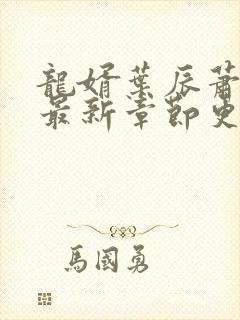 龍婿葉辰蕭
最新章節更
馬國勇